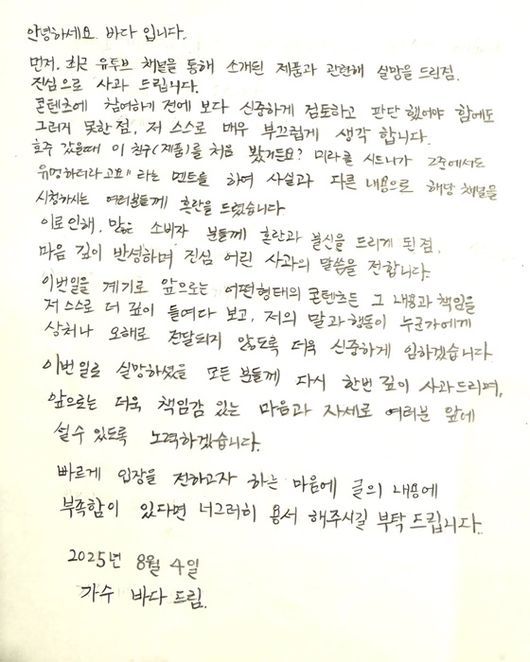 안녕하세요 바다 입니다.
먼저, 최근 유투브 채널을 통해 소개된 제품과 관련해 실망을 드린점.
진심으로 사과 드립니다.
콘텐츠에 참여하기 전에 보다 신중하게 검토하고 판단 했어야 함에도
그러지 못한점, 저 스스로 매우 부끄럽게 생각 합니다.
호주 갔을때 이 친구(제품)를 처음 봤거든요? 미라클 시드니가 그쪽에서도
유명하더라고요" 라는 멘트를 하여 사실과 다른 내용으로 해당 채널을
시청하시는 여러분들께 혼란을 드렸습니다
이로 인해, 많은 소비자 분들께 혼란과 불신을 드리게 된점,
마음 깊이 반성하며 진심 어린 사과의 말씀을 전합니다.
이번일을 계기로 앞으로는 어떤형태의 콘텐츠든 그 내용과 책임을
저 스스로 더 깊이 들여다 보고, 저의 말과 행동이 누군가에게
상처나 오해로 전달되지 않도록 더욱 신중하게 임하겠습니다
이번 일로 실망하셨을 모든 분들께 다시 한번 깊이 사과드리며,
앞으로는 더욱 책임감 있는 마음과 자세로 여러분 앞에
설수 있도록 노력하겠습니다.
빠르게 입장을 전하고자 하는 마음에 글의 내용에
부족함이 있다면 너그러히 용서 해주시길 부탁 드립니다.
2025년 8월 4일
가수 바다 드림.